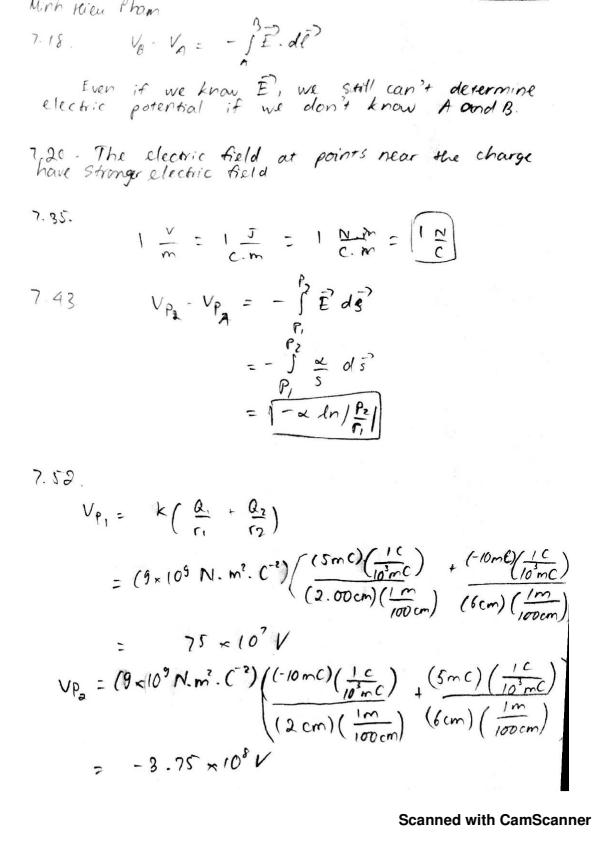 Minh Hieu Pham
7.18. V_B - V_A = - ∫_A^B E⃗ . dl⃗
Even if we know E⃗, we still can't determine
electric potential if we don't know A and B.
7.20 - The electric field at points near the charge
have stronger electric field
7.35.
1 V/m = 1 J/C.m = 1 N.m/C.m = 1 N/C
7.43 V_P2 - V_P1 = - ∫_P1^P2 E⃗ ds⃗
= - ∫_P1^P2 α/s ds⃗
= -α ln|P2/P1|
7.52.
V_P1 = k(Q1/r1 + Q2/r2)
= (9×10^9 N.m².C^-2)((5mC)(1C/10^3mC)/(2.00cm)(1m/100cm) + (-10mC)(1C/10^3mC)/(6cm)(1m/100cm)
= 75 × 10^7 V
V_P2 = (9×10^9 N.m².C^-2)((-10mC)(1C/10^3mC)/(2cm)(1m/100cm) + (5mC)(1C/10^3mC)/(6cm)(1m/100cm)
= -3.75 × 10^8 V
Scanned with CamScanner